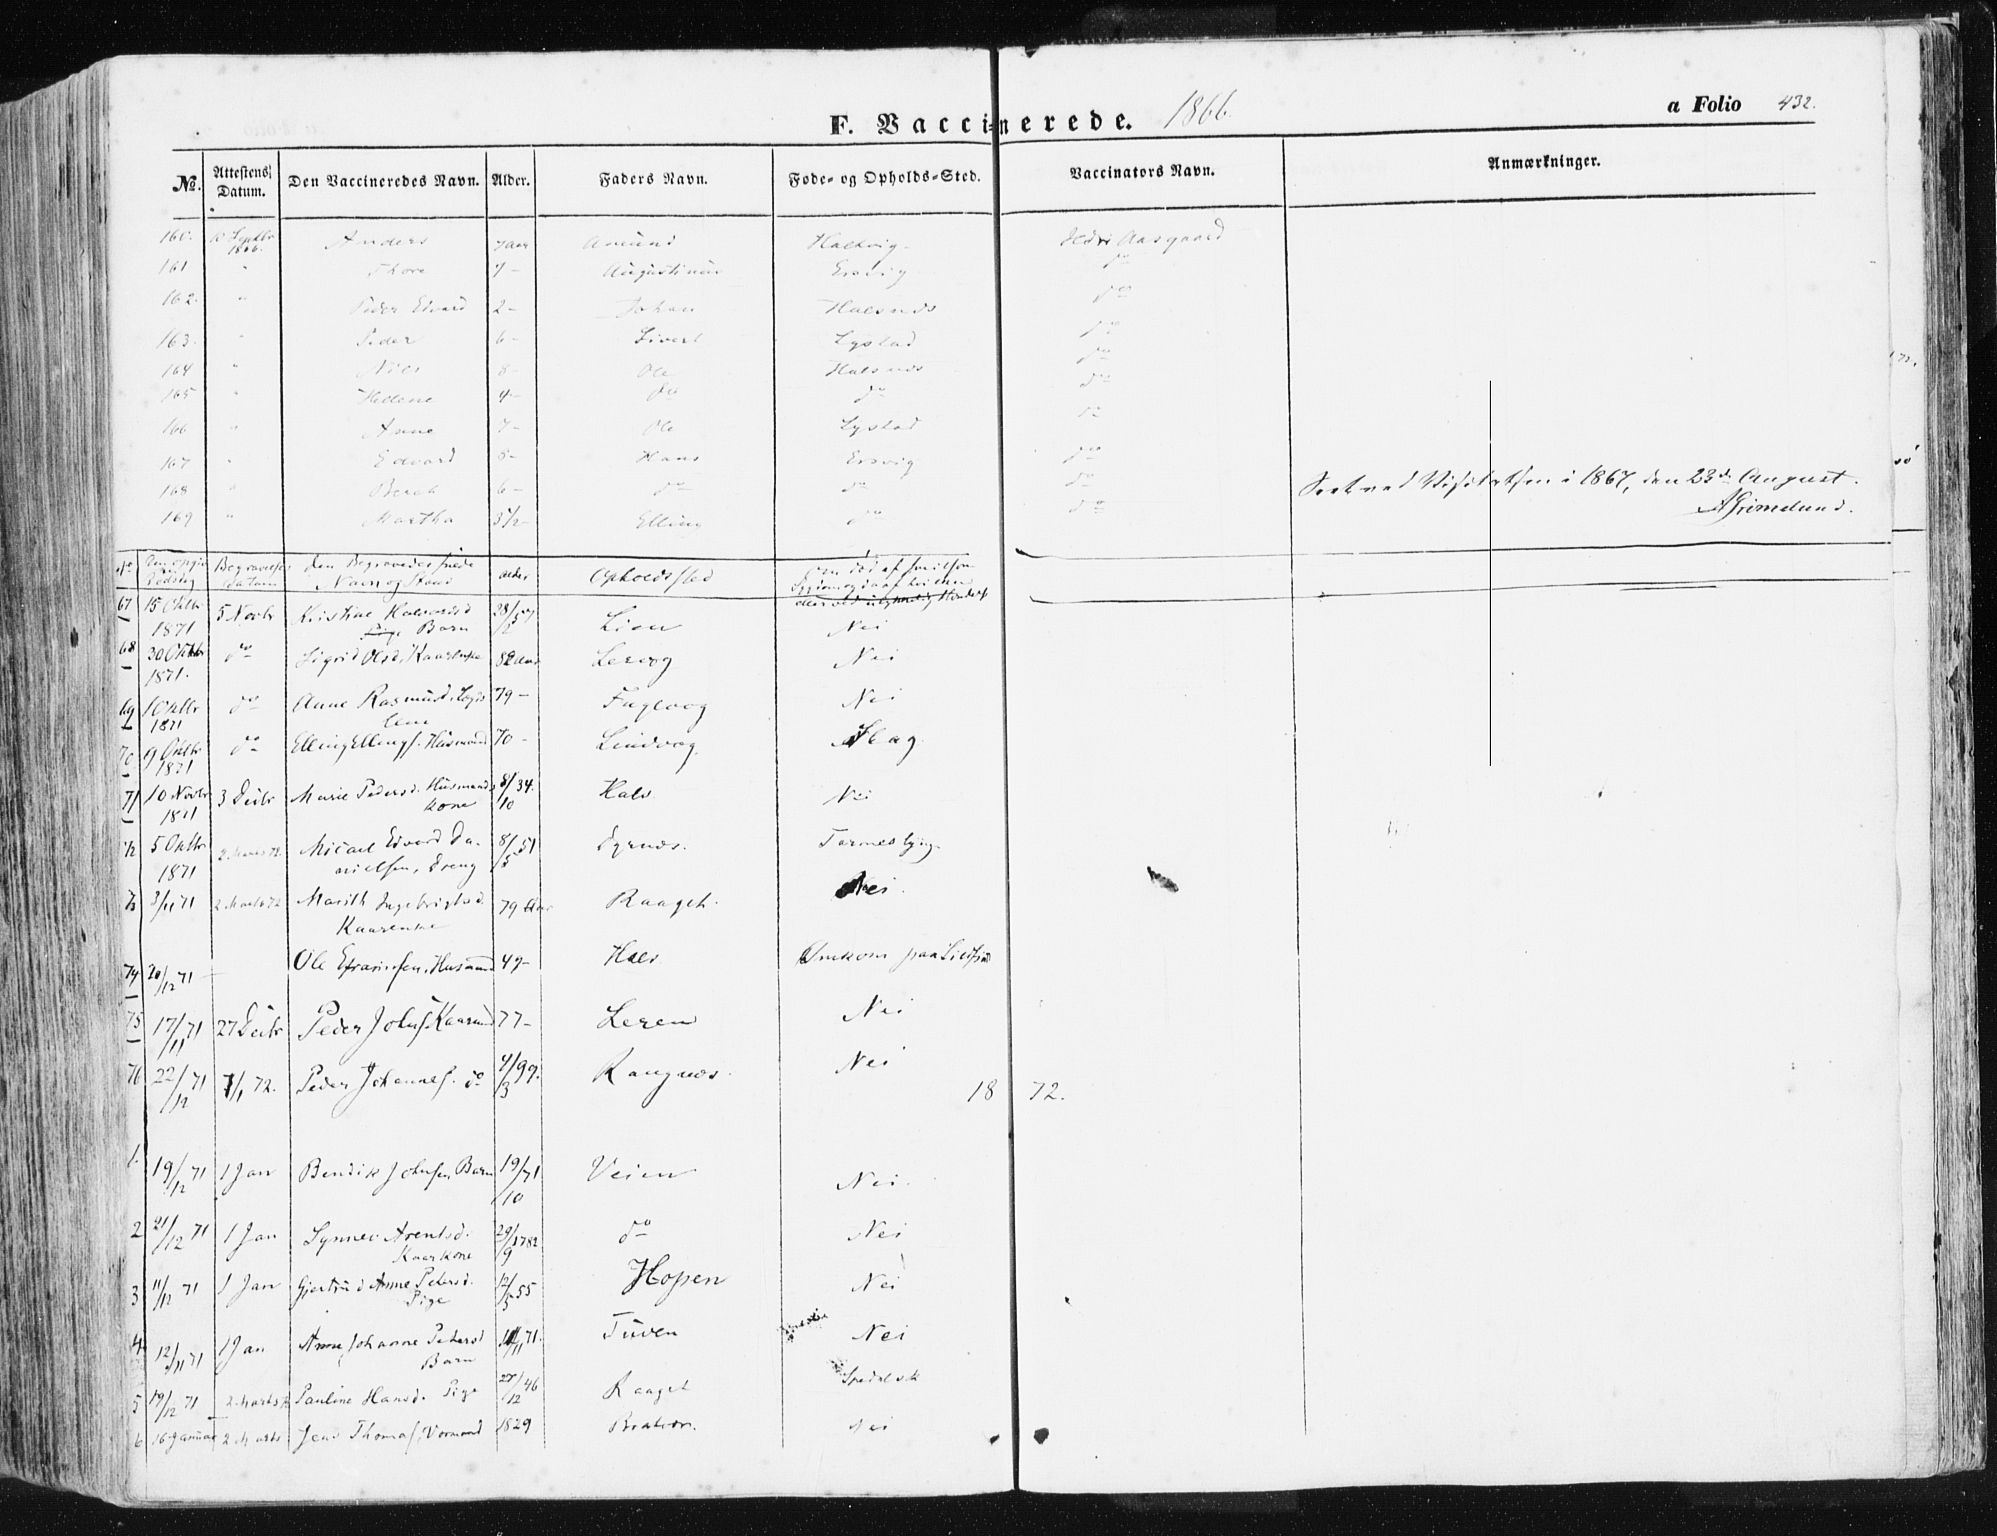 F. Vaccinerede. 1866.
a Folio 432.
No. Attestens Datum. Den Vaccineredes Navn. Alder. Faders Navn. Føde- og Opholds-Sted. Vaccinators Navn. Anmærkninger.
160. 10 Septbr 1866. Anders 7 Aar Amund Halsvig. Aasgaard
161 " Thore 7 - Augustinus Ersvig do
162. " Peder Edvard 2 - Johan Halsnæs do
163. " Peder 6 - Sivert Lystad do
164 " Nils 8 - Ole Halsnæs do
165 " Helene 4 - do do do
166 " Anne 7 - Ole Lystad do
167 " Edvard 5 - Hans Ersvig do
168 " Beret 6 - do do do
169 " Martha 3½ - Elling do do
Seet ved Visitatsen i 1867, den 23de August.
AGrimelund.
No Dødsdag Begravelses Datum Den Begravedes fulde Navn og Stand Alder Opholdssted
67 15 Oktbr 1871 5 Novbr Kristine Halvorsd. Barn Lien Nei
68 30 Oktbr 1871. do Sigrid Olsd. Kaarenke 82 Aar Lervog Nei
69 1 Oktbr 1871 do Anne Rasmusd. Lægdslem 79 - Fuglvog Nei
70 9 Oktbr 1871 do Elling Ellings. Husmand 70 - Lindvog. Slag.
71 10 Novbr 1871 3 Decbr Marie Pedersd. Husmands kone 8/10 34. Hals Nei
72 5 Oktbr 1871 2 Marts 72 Micael Edvard Danielsen, Dreng 8/5 51 Dyrnæs.
73 3/11 71 2 Marts 72 Marith Ingebrigtsd. Kaarenke 79 Aar Raaget. Nei.
74 20/12 71 - Ole Efraimsen, Husmand 47 - Hals Omkom paa
75 17/11 71 27 Decbr Peder Johns. Kaarmand 77 - Leren Nei
76 22/12 71 7/1 72. Peder Johannes. do 4/3 99. Rangnæs. Nei
1872.
1. 19/12 71 1 Jan Bendik Johnsen, Barn 19/10 71 Veien Nei.
2 21/12 71 1 Jan Synnev Arentsd. Kaarkone 29/9 1782 do Nei
3 11/12 71 1 Jan Gjertrud Anne Petersd. Pige 12/5 55 Hopen Nei
4 12/11 71 1 Jan Anne Johanne Petersd Barn 11/11 71. Tuven Nei
5 19/12 71 2 Marts 72 Pauline Hansd. Pige 27/12 46 Raaget Spedalsk
6 16 Januar 2 Marts Jens Thomas. 1829 Nei